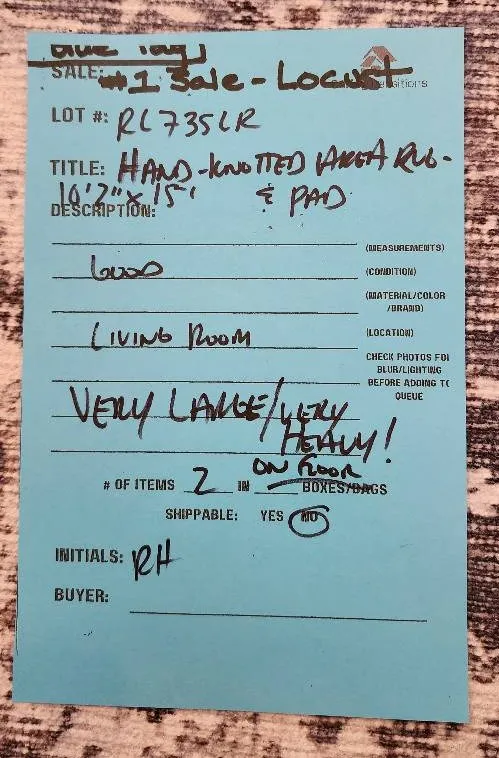 Blue Tag
SALE: #1 Sale - LOCUST
LOT #: RL735LR
TITLE: HAND-KNOTTED AREA RUG-
10'2" x 15' & PAD
DESCRIPTION:
(MEASUREMENTS)
GOOD (CONDITION)
(MATERIAL/COLOR
/BRAND)
LIVING ROOM (LOCATION)
CHECK PHOTOS FOR
BLUR/LIGHTING
BEFORE ADDING TO
QUEUE
VERY LARGE/VERY
HEAVY!
ON FLOOR
# OF ITEMS 2 IN BOXES/BAGS
SHIPPABLE: YES NO
INITIALS: RH
BUYER: